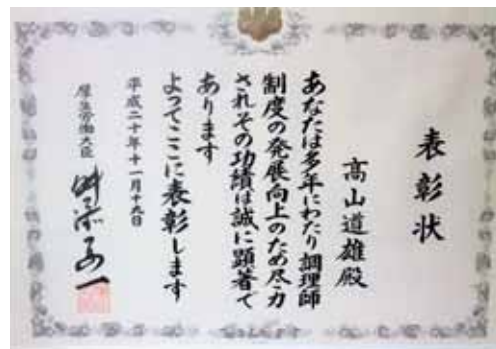 表彰状
高山道雄殿
あなたは多年にわたり調理師
制度の発展向上のため尽力
されその功績は誠に顕著で
あります
よってここに表彰します
平成二十年十一月十九日
厚生労働大臣 舛添要一